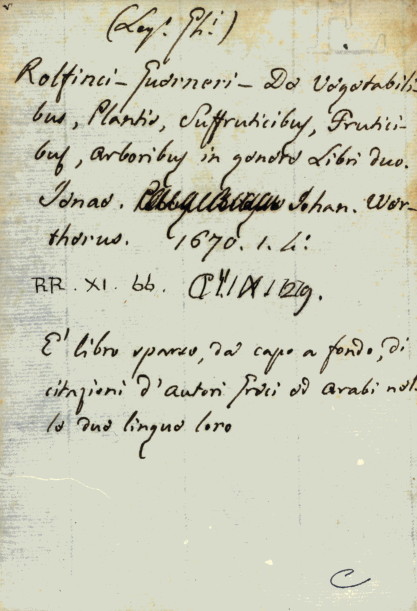 (Leg. Ghi)
Rolfinci - Guerneri - De Vegetabili-
bus, Plantis, Suffruticibus, Frutici-
bus, Arboribus in genere Libri duo.
Jenae. Johan. Wer-
therus. 1670. 1. 4:
RR. XI. 66.
E' libro sparso, da capo a fondo, di
citazioni d'autori Greci ed Arabi nel-
le due lingue loro
C